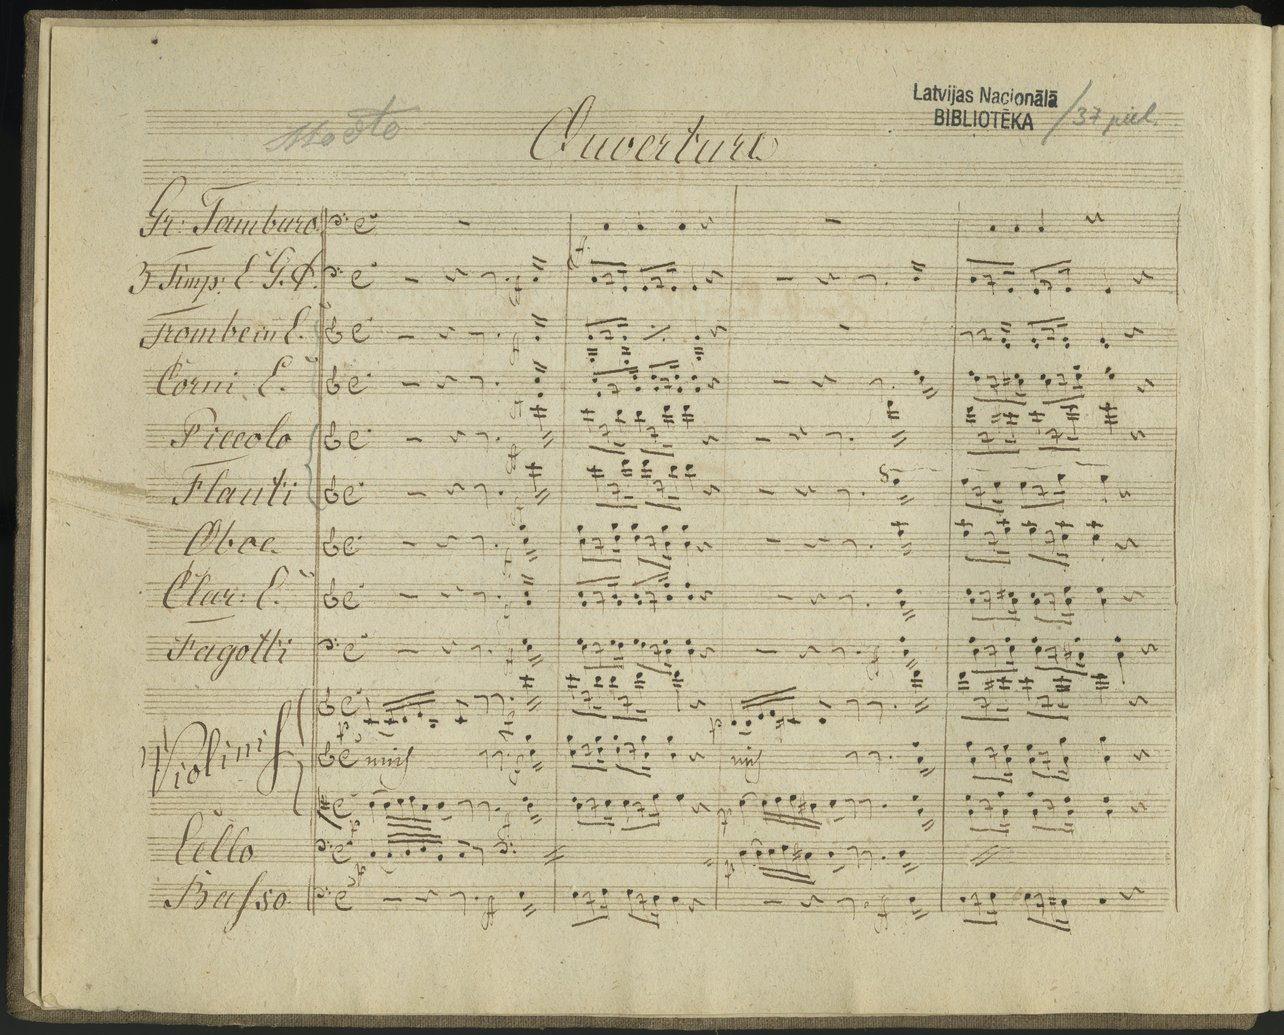 Latvijas Nacionālā
BIBLIOTĒKA
Ouverture
Gr: Tamburo
3 Timp: C G. D.
Trombe in C.
Corni C.
Piccolo
Flauti
Oboe.
Clar: C.
Fagotti
Violini
Cello
Basso